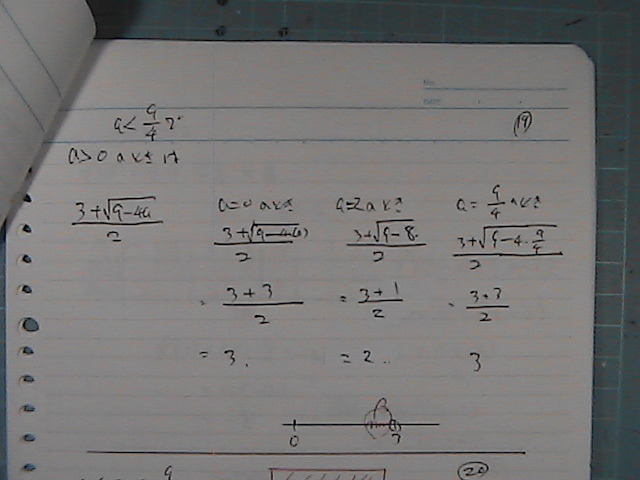 No.
DATE
a < 9/4 で
⑲
a > 0 のときは
(3+√(9-4a))/2
a=0 のとき
(3+√(9-4(0)))/2
= (3+3)/2
= 3.
a=2 のとき
(3+√(9-8))/2
= (3+1)/2
= 2..
a = 9/4 のとき
(3+√(9-4・9/4))/2
= (3+3)/2
3
0
3
⑳
9